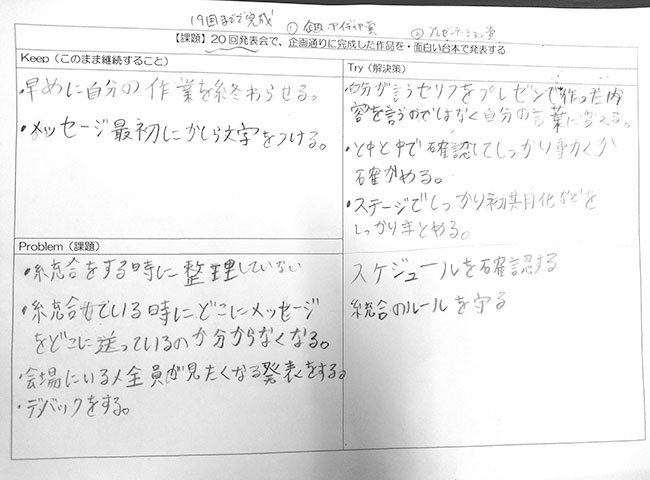 19回までで完成
① アイディア賞
② プレゼンテーション賞
【課題】20回発表会で、企画通りに完成した作品を・面白い台本で発表する
Keep（このまま継続すること）
・早めに自分の作業を終わらせる。
・メッセージ最初にかしら文字をつける。
Try（解決策）
自分が言うセリフをプレゼンで作った内
容を言うのではなく自分の言葉に変える。
・と中と中で確認してしっかり動くか
確かめる。
・ステージでしっかり初期化などを
しっかりまとめる。
スケジュールを確認する
統合のルールを守る
Problem（課題）
・統合をする時に整理していない
・統合せている時にどこにメッセージ
をどこに送っているのか分からなくなる。
・会場にいる人全員が見たくなる発表をする。
・デバックをする。